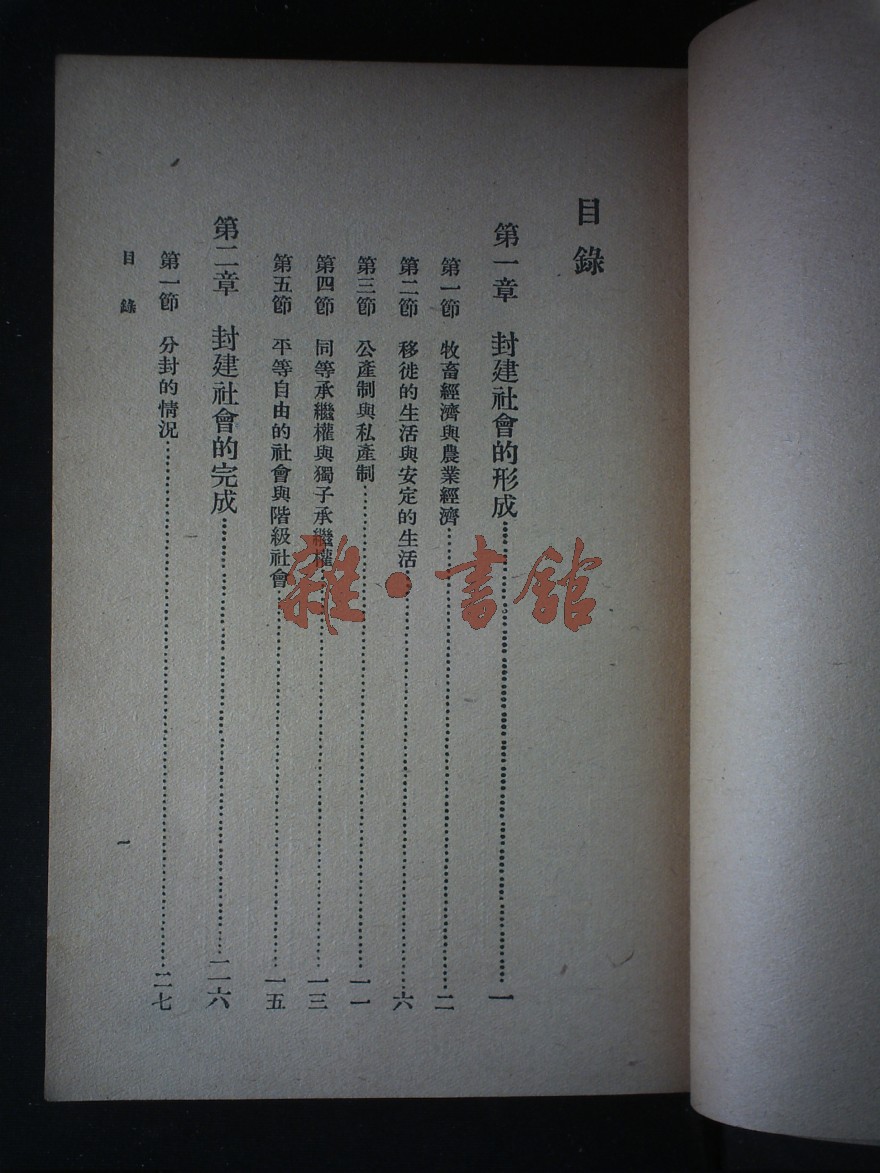 目錄
第一章 封建社會的形成……一
第一節 牧畜經濟與農業經濟……二
第二節 移徙的生活與安定的生活……六
第三節 公產制與私產制……一一
第四節 同等承繼權與獨子承繼權……一三
第五節 平等自由的社會與階級社會……一五
第二章 封建社會的完成……二六
第一節 分封的情況……二七
目錄
一
雜·書館